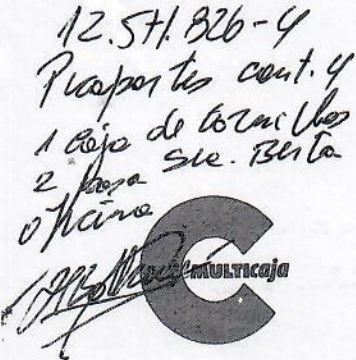 12.571.826-4
cont. 4
1 caja de tornillos
2 Sra. Berta
oficina
MULTICAJA